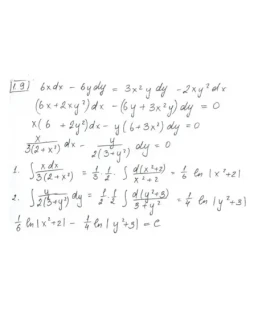 1.9 6xdx - 6ydy = 3x²ydy - 2xy²dx
(6x+2xy²)dx - (6y+3x²y)dy = 0
x(6+2y²)dx - y(6+3x²)dy = 0
x/3(2+x²) dx - y/2(3+y²) dy = 0
1. ∫ xdx/3(2+x²) = 1/3 · 1/2 · ∫ d(x²+2)/x²+2 = 1/6 ln|x²+2|
2. ∫ y/2(3+y²) dy = 1/2 · 1/2 ∫ d(y²+3)/3+y² = 1/4 ln|y²+3|
1/6 ln|x²+2| - 1/4 ln|y²+3| = C